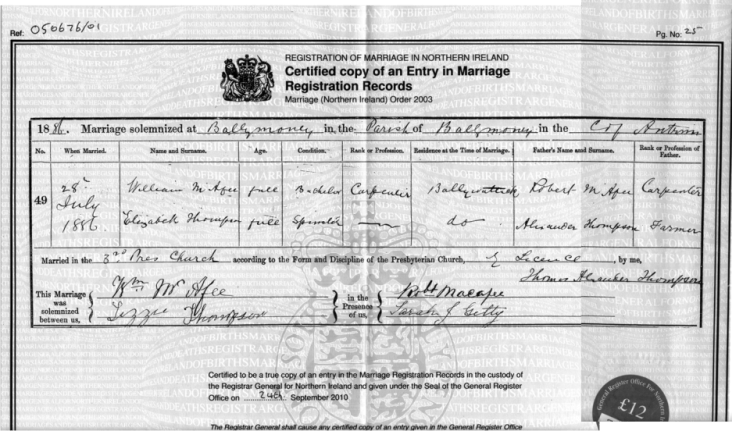 Ref: 050676/01
Pg. No: 25
REGISTRATION OF MARRIAGE IN NORTHERN IRELAND
Certified copy of an Entry in Marriage
Registration Records
Marriage (Northern Ireland) Order 2003
1886. Marriage solemnized at Ballymoney in the Parish of Ballymoney in the Co of Antrim
No. When Married. Name and Surname. Age. Condition. Rank or Profession. Residence at the Time of Marriage. Father's Name and Surname. Rank or Profession of Father.
49 28th July 1886 William McAfee full Bachelor Carpenter Robert McAfee Carpenter
Elizabeth Thompson full Spinster — do Alexander Thompson Farmer
Married in the 3rd Pres Church according to the Form and Discipline of the Presbyterian Church, by Licence, by me,
Thomas Alexander Thompson
This Marriage was solemnized between us, Wm McAfee Lizzie Thompson in the Presence of us, Robt Macafee Sarah J Getty
Certified to be a true copy of an entry in the Marriage Registration Records in the custody of
the Registrar General for Northern Ireland and given under the Seal of the General Register
Office on 24th September 2010
The Registrar General shall cause any certified copy of an entry given in the General Register Office
General Register Office for Northern
£12